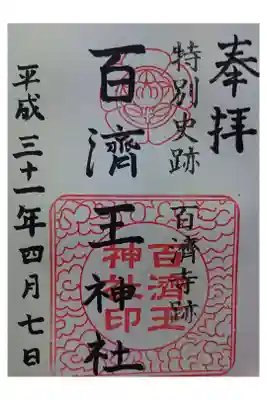 奉拝
特別史跡 百濟寺跡
百濟王神社
百濟王神社印
平成三十一年四月七日